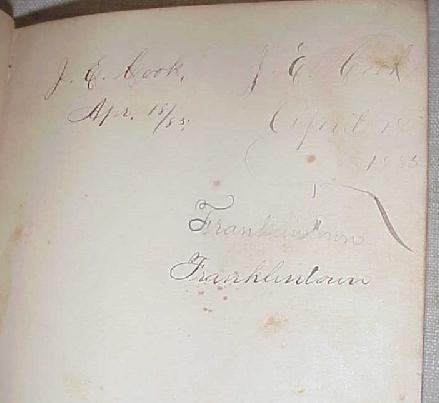 J. E. Cook.
Apr. 18/85.
J. E. Cook
April 18
1885
Franklintown
Franklintown